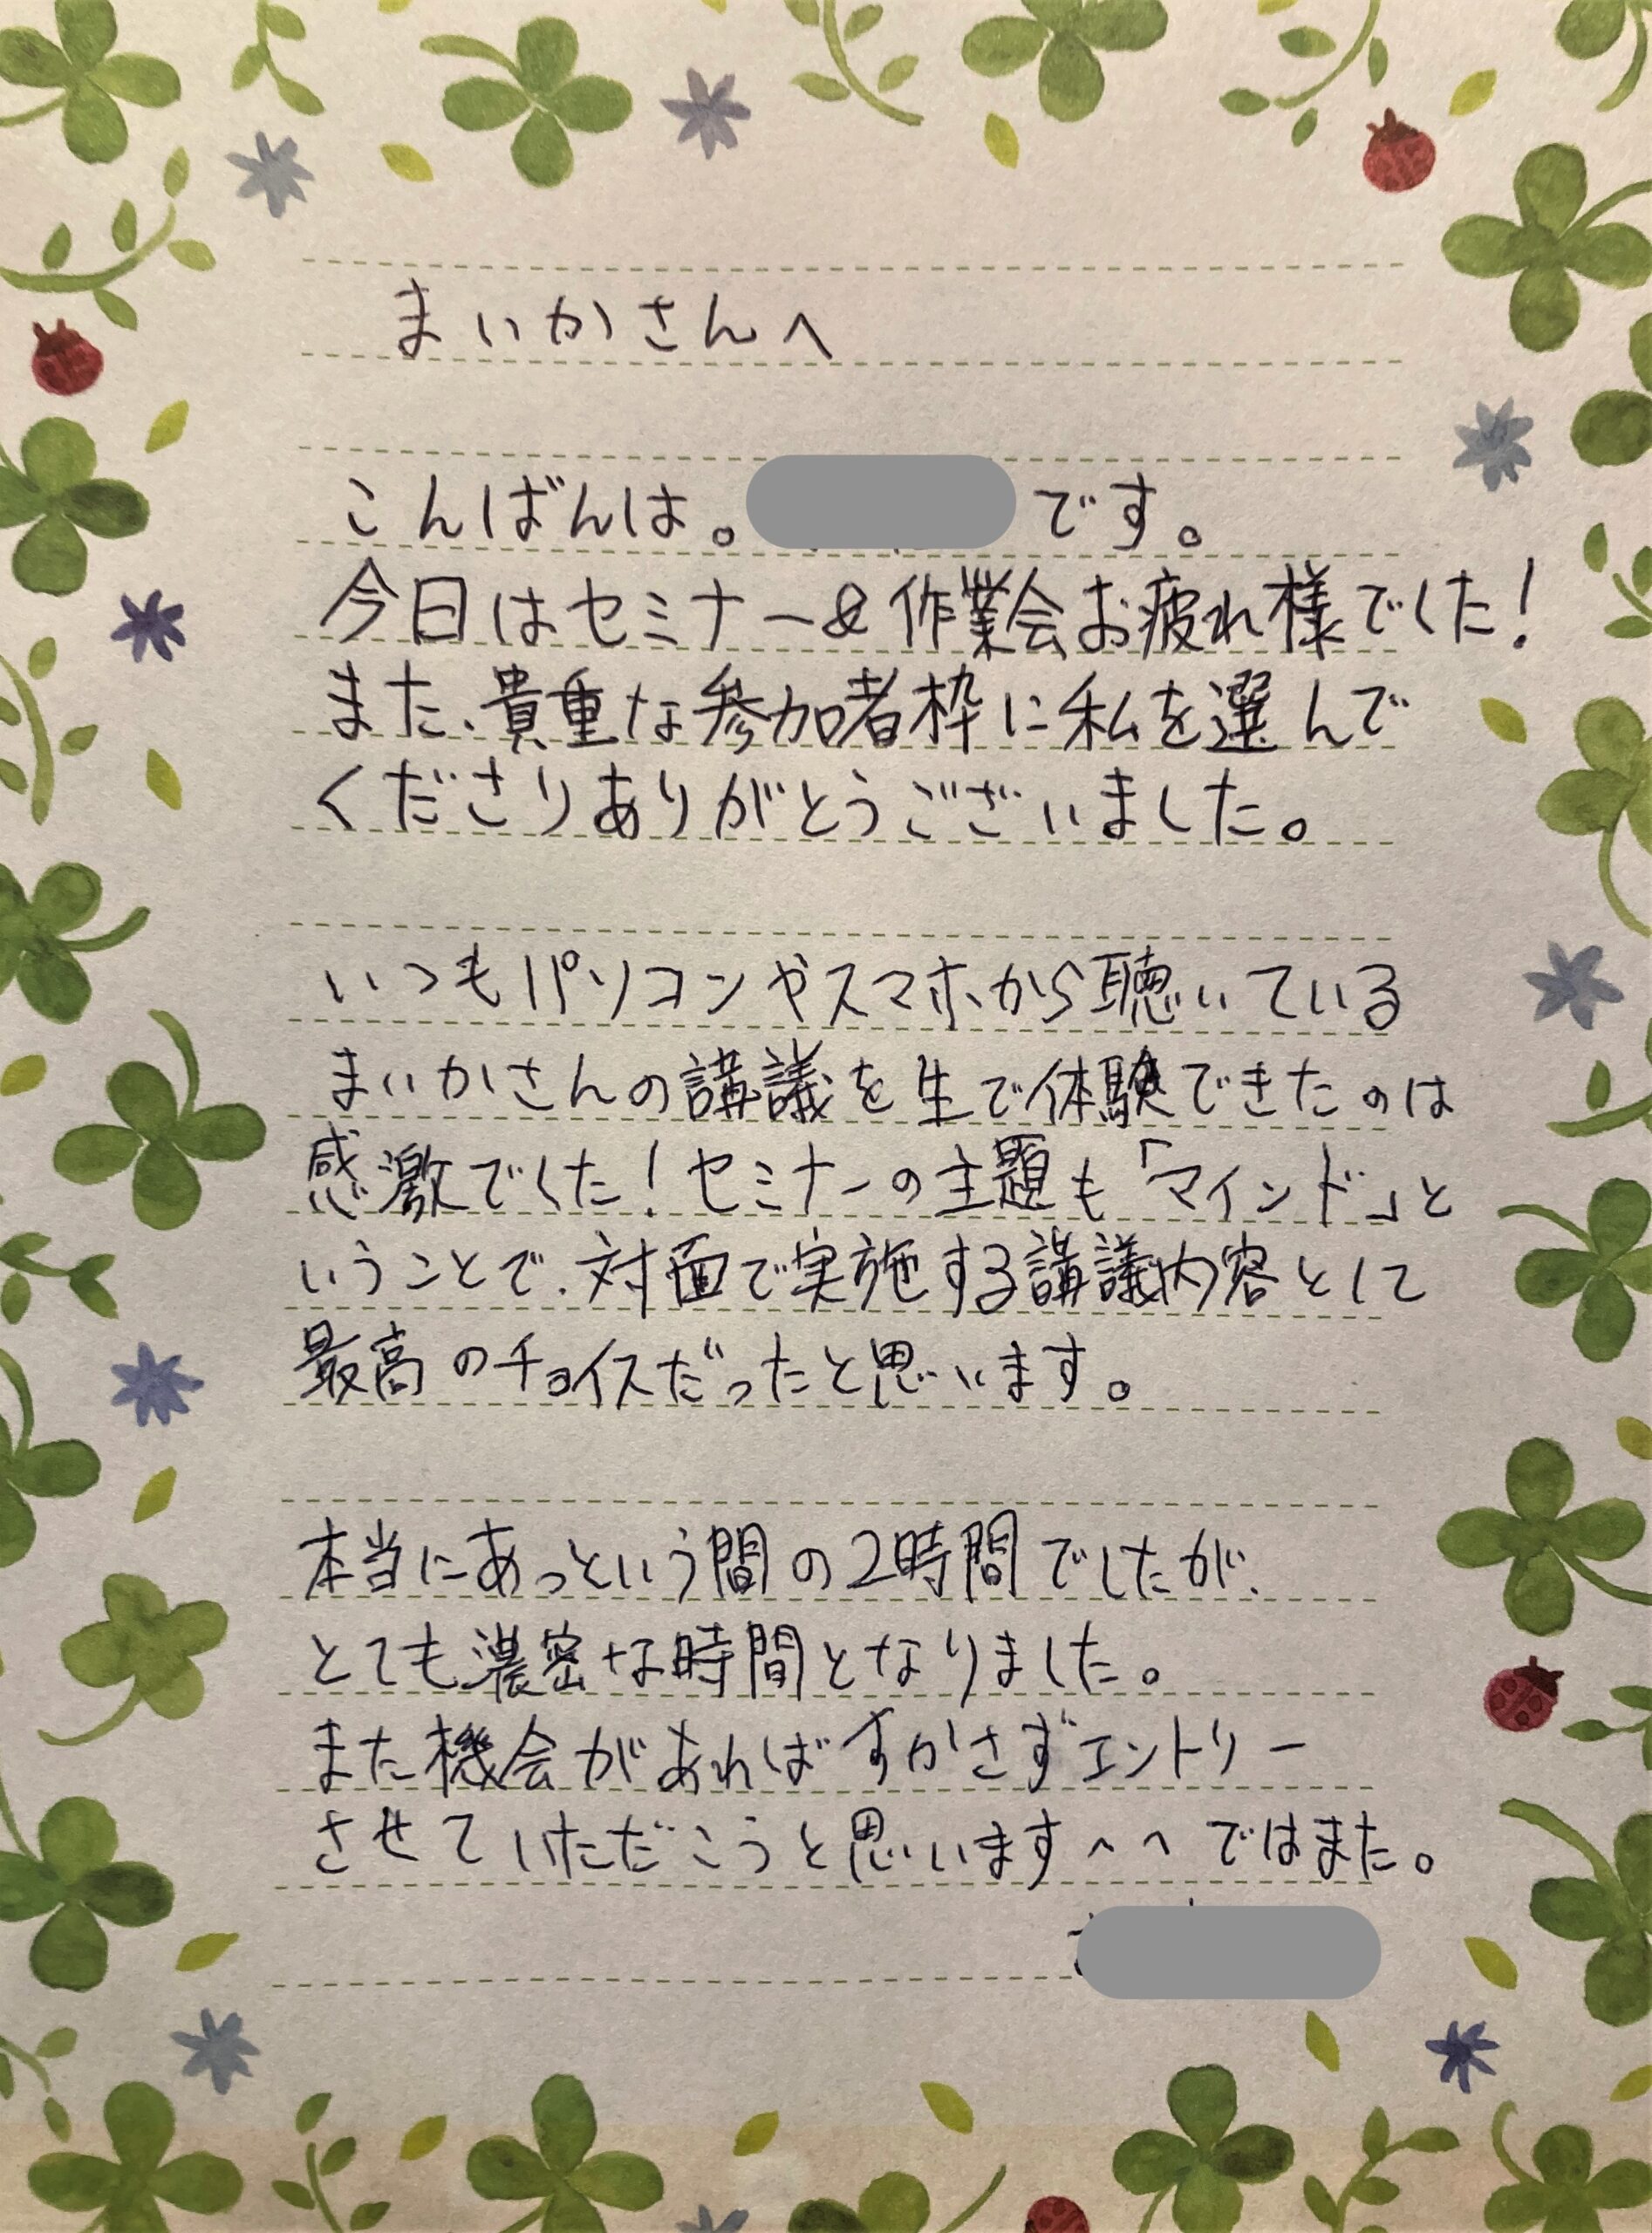 まいかさんへ
こんばんは。
です。
今日はセミナー&作業会お疲れ様でした!
また、貴重な参加者枠に私を選んで
くださりありがとうございました。
いつもパソコンやスマホから聴いている
まいかさんの講議を生で体験できたのは
感激でした!セミナーの主題も「マインド」と
いうことで、対面で実施する講議内容として
最高のチョイスだったと思います。
本当にあっという間の2時間でしたが、
とても濃密な時間となりました。
また機会があればすかさずエントリー
させていただこうと思います^^ではまた。